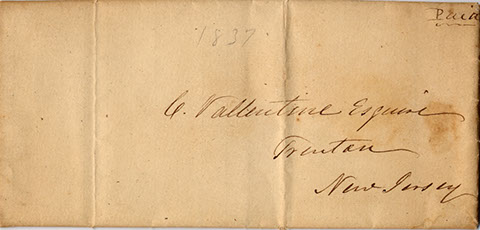 Paid
1837
C. Vallentine Esquire
Trenton
New Jersey